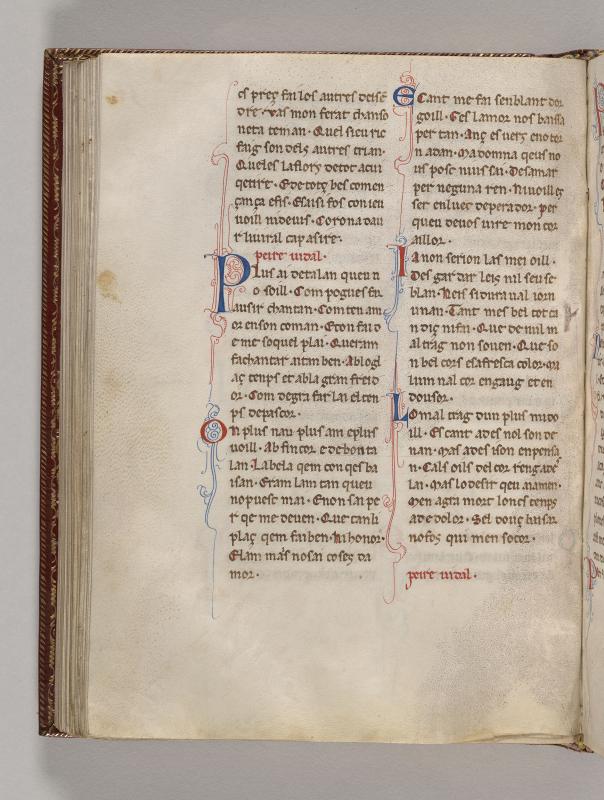 es preç fai los autres deisē
dre. Vas mon ferat chanso
neta teman. Quel sieu ric
faig son dels autres trian.
Queles la flors de totç acui
qerirr. E de totç bes comen
çança e fis. E si fos con ieu
uoill nideuis. Corona dau
r liuiral cap asire.
peire uidal.
Plus ai de talan queu n
o soill. Com pogues fa
ausir chantan. Com ten am
or en son coman. Et on fai d
e me so quel plai. Queram
fa chantar aitan ben. Ab logl
aç temps et ab la gran freid
or. Com degra far lai el ten
ps de pascor.
On plus uau plus am e plus
uoill. Ab fin cor e de bona
lan. La bela qem conqes ba
isan. Eram lam tan queu
no puesc mai. E non sai pe
r qe me deuen. Que tan li
plaç qem fai ben. Ni honor.
El am mas no sai co ses da
mor.
E cant me fai senblant dor
goill. Ges lamor nos baissa
per tan. Anç es uers eno tor
n adan. Ma domna qeus no
us posc nuis fai. Desamar
per neguna ren. Ni uoill eş
ser en luec de perador. per
queu de uos uire mon cor
aillor.
Ia non serion las mei oill.
Des gardar leis nil seu se
blan. Neis si duraual iorn
un an. Tant mes bel tot ca
n diç ni fai. Que de nuil m
al trag non souen. Que so
n bel cors e sa fresca color. ma
lum nal cor en gaug et en
dousor.
Lo mal trag dun plus mi do
ill. Es cant ades nol son de
nan. mas ades i son en pensa
n. Cals oils del cor ren gade
lan. Mas lo desir qeu nai men.
Men agra mort lonc temps
a de dolor. Sel douç baisar
no fos qui men socor.
peire uidal.